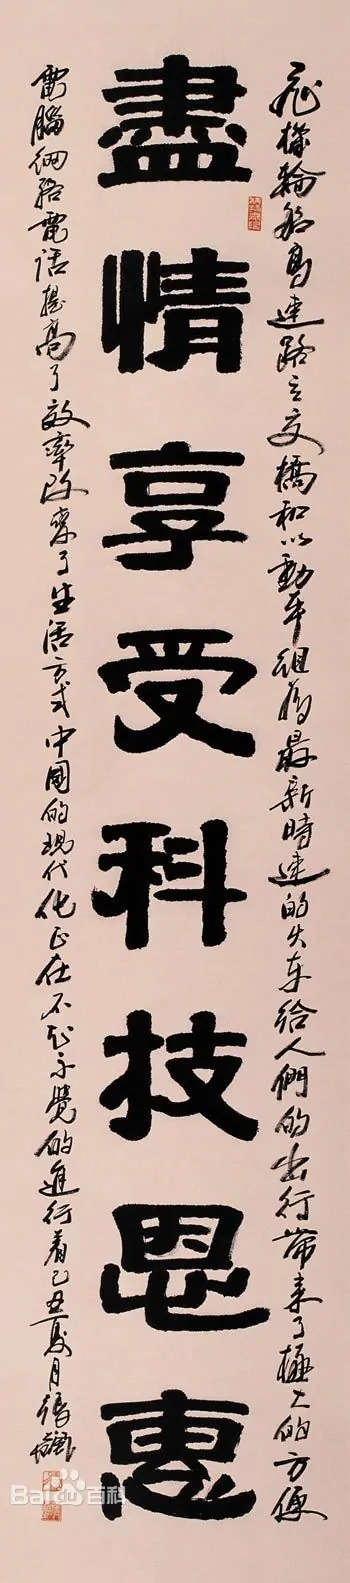 盡情享受科技恩惠
飛機輪船高速路立交橋和以動车組為最新時速的火车給人們的出行带来了極大的方便
電腦網絡電话提高了效率改变了生活方式中國的現代化正在不知不覺的進行着己丑夏月張
Baidu百科